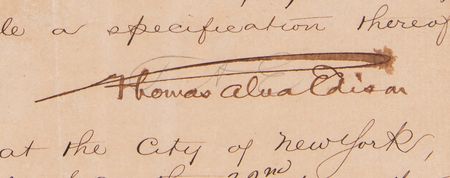 le a specification thereof
Thomas Alva Edison
at the City of New York,
22nd